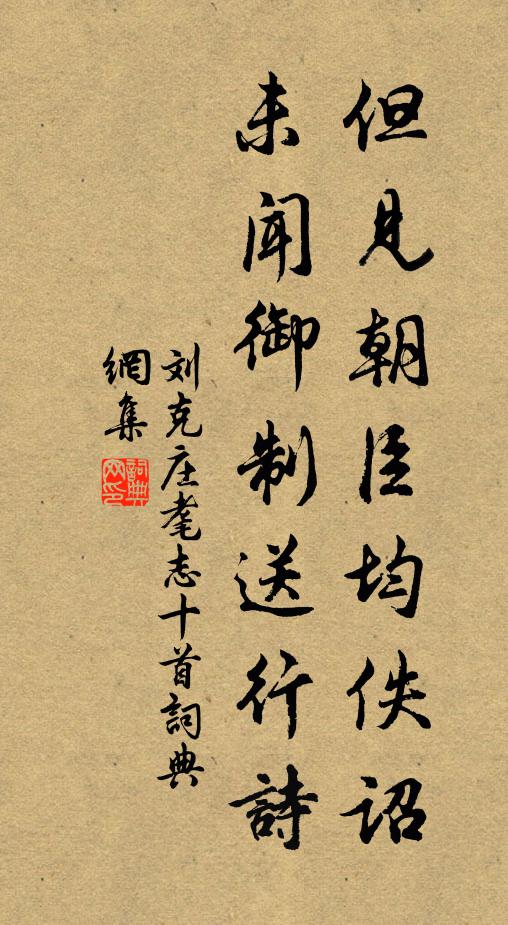 但見朝臣均佚詔
未聞御制送行詩
刘克庄耄志十首詞典
網集
詞典網印